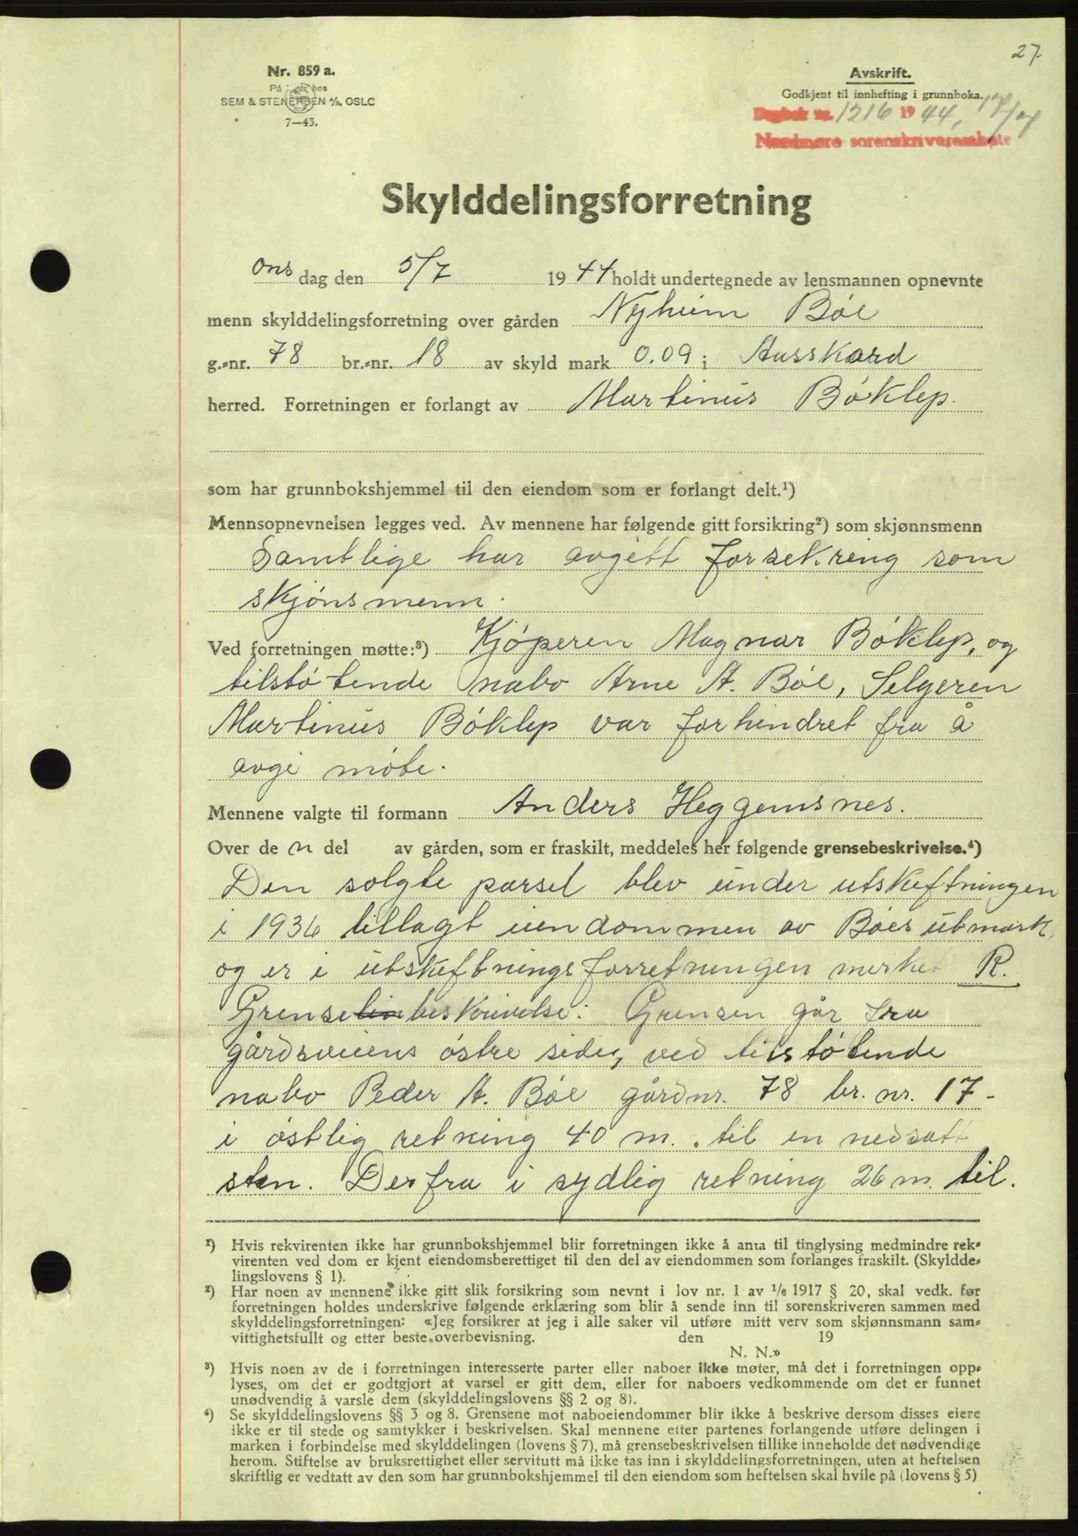 27
Nr. 859 a.
SEM & STENERSEN A/S, OSLO
7—43.
Avskrift.
Godkjent til innhefting i grunnboka.
Dagbok nr. 1216 1944, 17/7
Nordmøre sorenskriverembete
Skylddelingsforretning
Ons dag den 5/7 1944 holdt undertegnede av lensmannen opnevnte
menn skylddelingsforretning over gården Nyheim Bøe
g.-nr. 78 br.-nr. 18 av skyld mark 0.09 i Ausskard
herred. Forretningen er forlangt av Martinus Bøklep.
som har grunnbokshjemmel til den eiendom som er forlangt delt.¹)
Mennsopnevnelsen legges ved. Av mennene har følgende gitt forsikring²) som skjønnsmenn
Samtlige har avgitt forsekring som
skjønsmenn.
Ved forretningen møtte:³) Kjøperen Magnar Bøklep, og
tilstøtende nabo Arne A. Bøe, Selgeren
Martinus Bøklep var forhindret fra å
avgi møte.
Mennene valgte til formann Anders Heggemsnes.
Over de n del av gården, som er fraskilt, meddeles her følgende grensebeskrivelse.⁴)
Den solgte parsel blev under utskiftningen
i 1936 tillagt eiendommen av Bøes utmark,
og er i utskiftningsforretningen merket R.
Grenselinbeskrivelse: Grensen går fra
gårdsveiens østre side, ved tilstøtende
nabo Peder A. Bøe gårdnr. 78 br. nr. 17 -
i østlig retning 40 m. til en nedsatt
sten. Derfra i sydlig retning 26 m. til.
¹) Hvis rekvirenten ikke har grunnbokshjemmel blir forretningen ikke å anta til tinglysing medmindre rek-
virenten ved dom er kjent eiendomsberettiget til den del av eiendommen som forlanges fraskilt. (Skyldde-
lingslovens § 1).
²) Har noen av mennene ikke gitt slik forsikring som nevnt i lov nr. 1 av 1/6 1917 § 20, skal vedk. før
forretningen holdes underskrive følgende erklæring som blir å sende inn til sorenskriveren sammen med
skylddelingsforretningen: «Jeg forsikrer at jeg i alle saker vil utføre mitt verv som skjønnsmann sam-
vittighetsfullt og etter beste overbevisning. den 19
N. N.»
³) Hvis noen av de i forretningen interesserte parter eller naboer ikke møter, må det i forretningen opp-
lyses, om det er godtgjort at varsel er gitt dem, eller for naboers vedkommende om det er funnet
unødvendig å varsle dem (skylddelingslovens §§ 2 og 8).
⁴) Se skylddelingslovens §§ 3 og 8. Grensene mot naboeiendommer blir ikke å beskrive dersom disses eiere
ikke er til stede og samtykker i beskrivelsen. Skal mennene etter partenes forlangende utføre delingen i
marken i forbindelse med skylddelingen (lovens § 7), må grensebeskrivelsen tillike inneholde det nødvendige
herom. Stiftelse av bruksrettighet eller servitutt må ikke tas inn i skylddelingsforretningen, uten at heftelsen
skriftlig er vedtatt av den som har grunnbokshjemmel til den eiendom som heftelsen skal hvile på (lovens § 5)